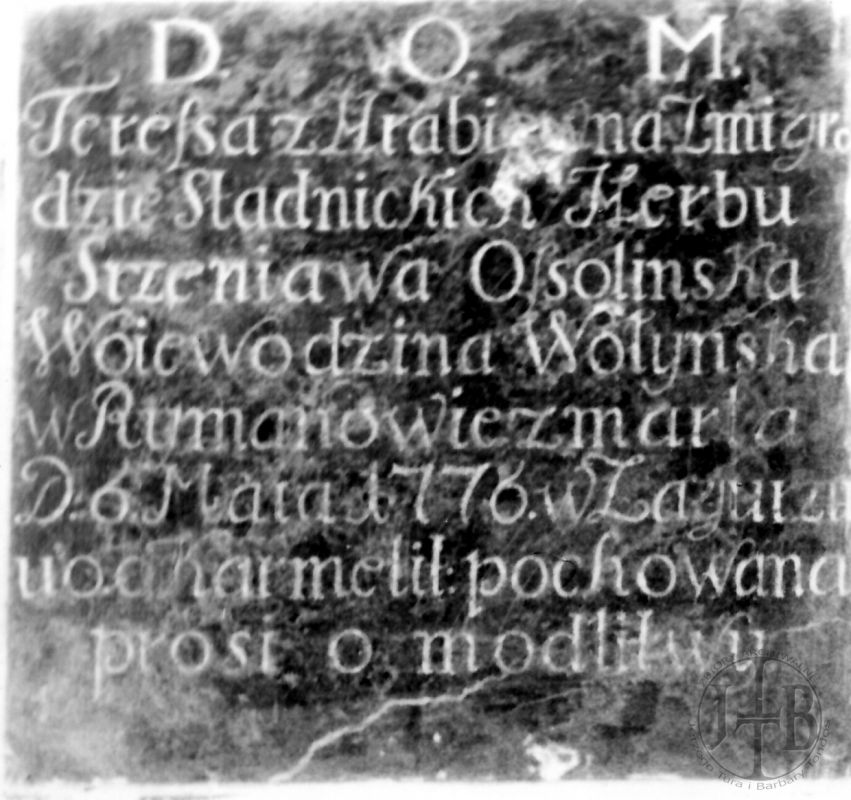 D. O. M.
Teresſa z Hrabi na Zmigro
dzie Stadnickich Herbu
Srzeniawa Oſsolinska
Woiewodzina Wołynska
w Rumanowie zmarła
D: 6. Maia 1776. w Zagurzu
u o. o. Karmelit: pochowana
prosi o modlitwy
J B